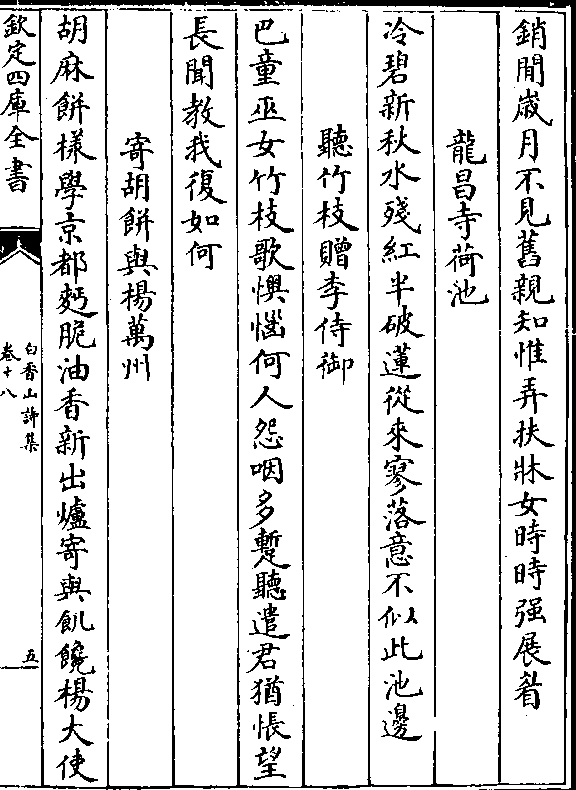 銷間嵗月不見舊親知惟弄扶牀女時時强展眉
龍昌寺荷池
冷碧新秋水殘紅半破蓮從來寥落意不似此池邊
聽竹枝贈李侍御
巴童巫女竹枝歌懊惱何人怨咽多蹔聽遣君猶悵望
長聞教我復如何
寄胡餅與楊萬州
胡麻餅様學京都麫脆油香新出爐寄與飢饞楊大使
欽定四庫全書
白香山詩集
卷十八
五